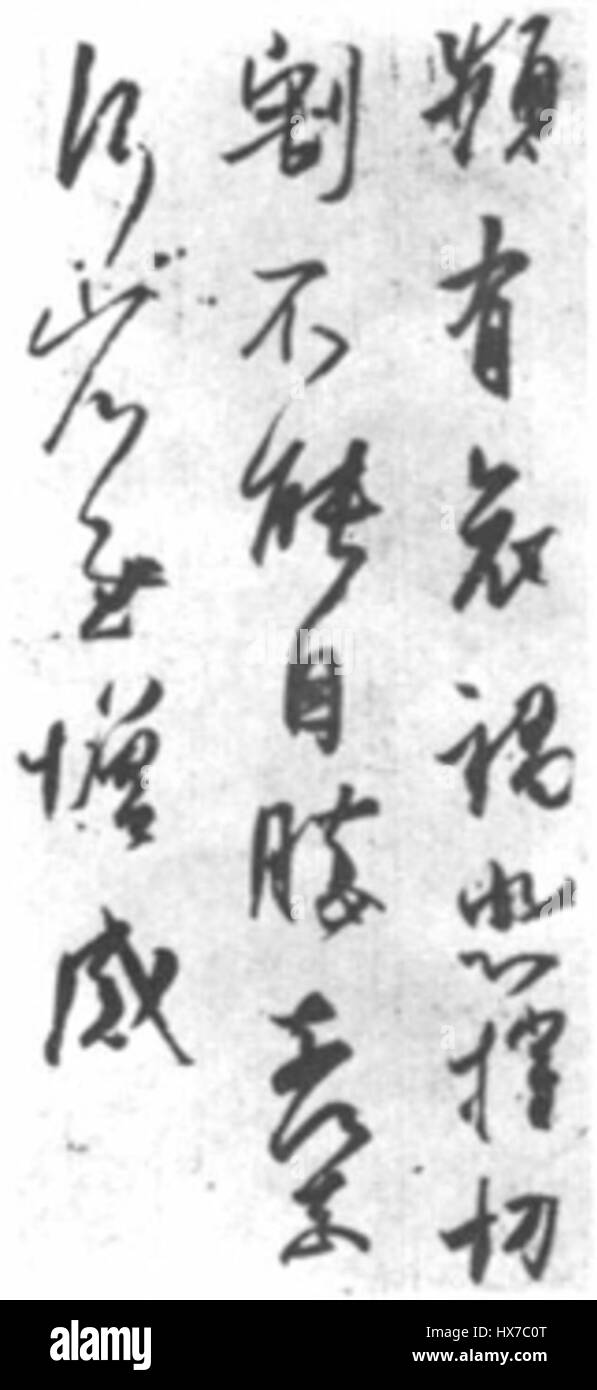 頻有哀禍悲摧切
割不能自勝奈何奈
何省慰增感
alamy
alamy
Image ID: HX7C0T
www.alamy.com